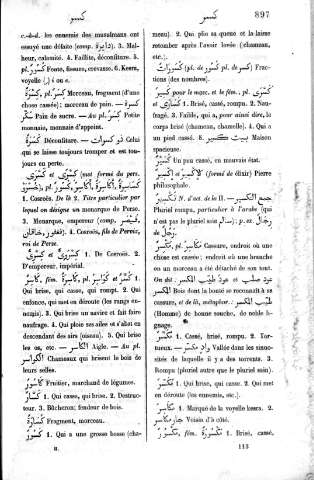 كسر
كسر 897
c.-à-d. les ennemis des musulmans ont
essuyé une défaite (comp. دائرة). 3. Mal-
heur, calamité. 4. Faillite, déconfiture. 5.
pl. كسور Fente, fissure, crevasse. 6. Kesra,
voyelle (ِ) i ou e.
كسرة, pl. كسر Morceau, fragment (d'une
chose cassée); morceau de pain. —
سكر Pain de sucre. — Au pl. كسر Petite
monnaie, monnaie d'appoint.
كسرة Déconfiture. — ذو كسرات Celui
qui se laisse toujours tromper et est tou-
jours en perte.
كسرى et كسرى (mot formé du pers.
1. Cosroès. De là 2. Titre particulier par
lequel on désigne un monarque de Perse.
3. Monarque, empereur (comp. قيصر,
خاقان, فغفور). 4. Cosroès, fils de Perviz,
roi de Perse.
كسروى et كسرى 1. De Cosroès. 2.
D'empereur, impérial.
كاسر, fém. كاسرة, pl. كواسر et كسر 1.
Qui brise, qui casse, qui rompt. 2. Qui
enfonce, qui met en déroute (les rangs en-
nemis). 3. Qui brise un navire et fait faire
naufrage. 4. Qui ploie ses ailes et s'abat en
descendant des airs (oiseau). 5. Qui brise
les os, etc. — الكاسر Aigle. — Au pl.
الكواسر Chameaux qui brisent le bois de
leurs selles.
كاسور Fruitier, marchand de légumes.
كسار 1. Qui casse, qui brise. 2. Destruc-
teur. 3. Bûcheron; fendeur de bois.
كسارة Fragment, morceau.
كسور 1. Qui a une grosse bosse (cha-
II.
meau). 2. Qui plie sa queue et la laisse
retomber après l'avoir levée (chameau,
etc.).
كسورات (pl. de كسور pl. de كسر) Frac-
tions (des nombres).
كسير pour le masc. et le fém. pl. كسرى
et كسارى 1. Brisé, cassé, rompu. 2. Nau-
fragé. 3. Faible, qui a, pour ainsi dire, le
corps brisé (chameau, chamelle). 4. Qui a
un pied cassé. — بيت كسير Maison
spacieuse.
Un peu cassé, en mauvais état.
إكسير et الاكسير (formé de élixir) Pierre
philosophale.
تكسير N. d'act. de la II. — جمع التكسير
Pluriel rompu, particulier à l'arabe (qui
n'est pas un pluriel sain سالم); p. ex. رجال de
رجل.
مكسر, pl. مكاسر Cassure, endroit où une
chose est cassée; endroit où une branche
ou un morceau a été détaché de son tout.
On dit المكسر صلب et عود طيب
المكسر Bois dont la bonté se reconnaît à sa
cassure, et de là, métaphor.: طيب المكسر
(Homme) de bonne souche, de noble li-
gnage.
مكسر 1. Cassé, brisé, rompu. 2. Tor-
tueux. — واد مكسر Vallée dans les sinuo-
sités de laquelle il y a des torrents. 3.
Rompu (pluriel autre que le pluriel sain).
مكسر 1. Qui brise, qui casse. 2. Qui met
en déroute (les ennemis, etc.).
مكاسر 1. Marqué de la voyelle kesra. 2.
جار مكاسر Voisin d'à côté.
مكسور, fém. مكسورة, 1. Brisé, cassé,
113